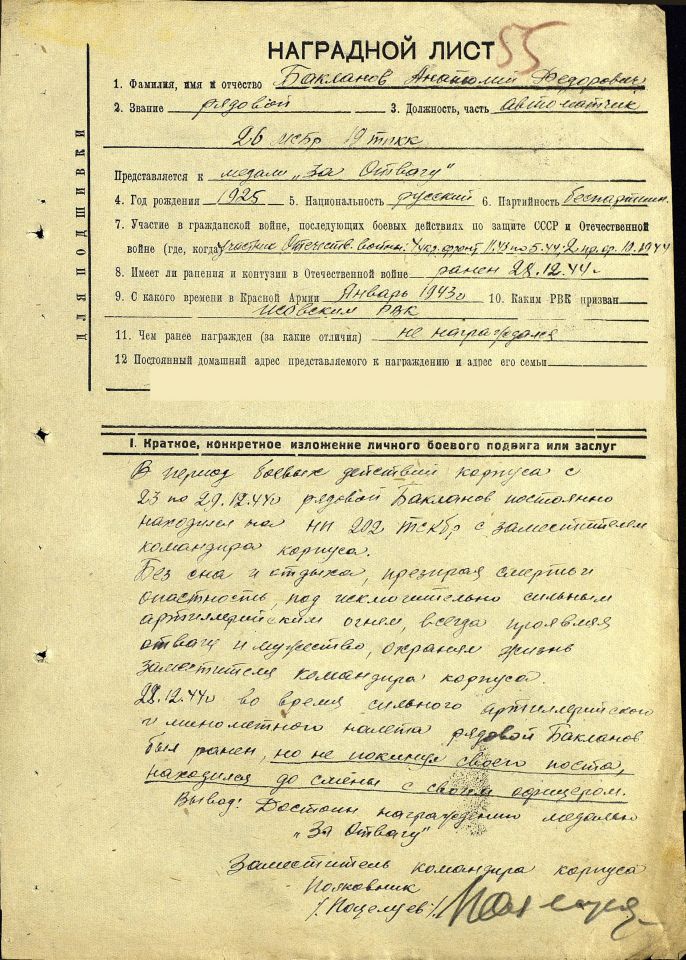 55
НАГРАДНОЙ ЛИСТ
1. Фамилия, имя и отчество Бакланов Анатолий Федорович
2. Звание рядовой 3. Должность, часть автоматчик
26 мсбр 19 тпкк
Представляется к медали „За Отвагу"
4. Год рождения 1925 5. Национальность русский 6. Партийность беспартийн.
7. Участие в гражданской войне, последующих боевых действиях по защите СССР и Отечественной
войне (где, когда) участник Отечеств. войны. 4 укр. фронт 11.43 по 5.44, 2 пр. фр. 10.1944
8. Имеет ли ранения и контузии в Отечественной войне ранен 28.12.44г
9. С какого времени в Красной Армии Январь 1943г 10. Каким РВК призван
Исовским РВК
11. Чем ранее награжден (за какие отличия) не награждался
12 Постоянный домашний адрес представляемого к награждению и адрес его семьи
ДЛЯ ПОДШИВКИ
I. Краткое, конкретное изложение личного боевого подвига или заслуг
В период боевых действий корпуса с
23 по 29.12.44г рядовой Бакланов постоянно
находился на НП 202 тскбр с заместителем
командира корпуса.
Без сна и отдыха, презирая смерть и
опастность, под исключительно сильным
артиллерийским огнем, всегда проявляя
отвагу и мужество, охранял жизнь
заместителя командира корпуса.
28.12.44г во время сильного артиллерийского
и минометного налета рядовой Бакланов
был ранен, но не покинул своего поста,
находился до смены с своим офицером.
Вывод: Достоин награждению медалью
„За Отвагу"
Заместитель командира корпуса
Полковник
/. Поцелуев ./